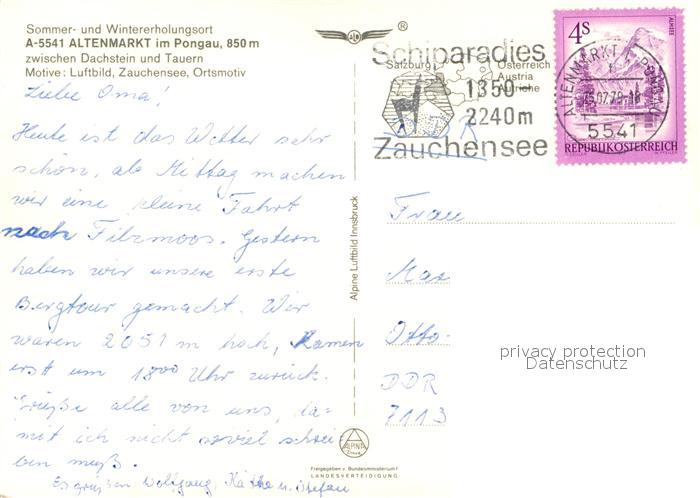 Sommer- und Wintererholungsort
A-5541 ALTENMARKT im Pongau, 850 m
zwischen Dachstein und Tauern
Motive: Luftbild, Zauchensee, Ortsmotiv
Liebe Oma!
Heute ist das Wetter sehr
schön, ab Mittag machen
wir eine kleine Fahrt
nach Filzmoos. Gestern
haben wir unsere erste
Bergtour gemacht. Wir
waren 2051 m hoch, kamen
erst um 18⁰⁰ Uhr zurück.
Grüße alle von uns, da-
mit ich nicht soviel schrei
ben muß.
Es grüßen Wolfgang, Käthe u. Stefan
Alpine Luftbild Innsbruck
ALPINA
Freigegeben v. Bundesministerium f.
LANDESVERTEIDIGUNG
®
Schiparadies
Salzburg
Österreich
Austria
Autriche
1350-
2240m
Zauchensee
4S
ALMSEE
REPUBLIK ÖSTERREICH
ALTENMARKT
5541
Frau
Max
Otto-
DDR
7113
privacy protection
Datenschutz